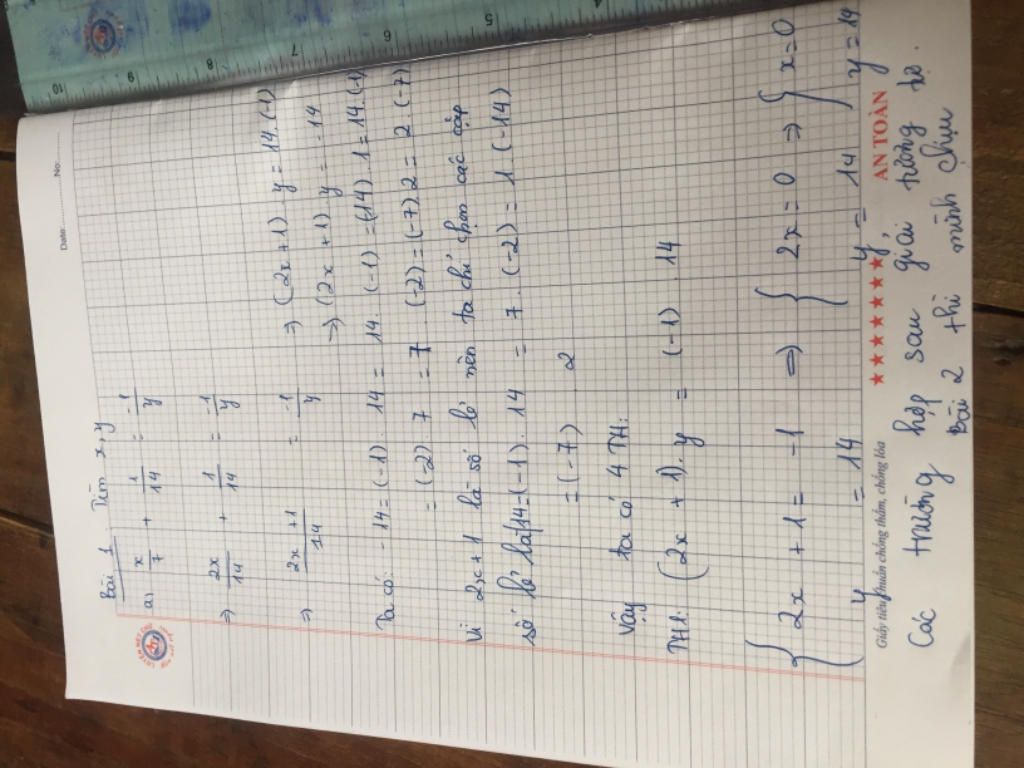 Date: ............... No: ..........
Bài 1. Tìm x, y
a) x/7 + 1/14 = -1/y
=> 2x/14 + 1/14 = -1/y
=> (2x+1)/14 = -1/y => (2x+1).y = 14.(-1)
=> (2x+1).y = -14
Ta có: -14 = (-1).14 = 14.(-1) = (-14).1 = 14.(-1)
= (-2).7 = 7.(-2) = (-7).2 = 2.(-7)
Vì 2x+1 là số lẻ nên ta chỉ chọn các cặp
số lẻ là -14 = (-1).14 = 7.(-2) = 1(-14)
= (-7).2
Vậy ta có 4 TH:
TH1: (2x+1).y = (-1).14
{ 2x+1 = -1 => { 2x = 0 => { x = 0
y = 14 y = 14 y = 14
Giấy tiêu chuẩn chống thấm, chống lóa ★★★★★★★★ AN TOÀN
Các trường hợp sau giải tương tự.
Bài 2 thì mình chịu
10 9 8 7 6 5 4